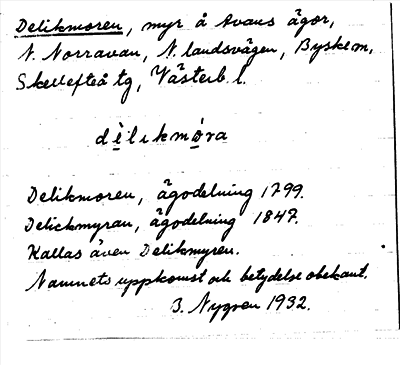 Delikmoren, myr å Avans ägor,
N. Norravan, N. landsvägen, Byske m,
Skellefteå tg, Västerb. l.
dèlıkmóra
Delikmoren, ägodelning 1799.
Delickmyran, ägodelning 1847.
Kallas även Delikmyren.
Namnets uppkomst och betydelse obekant.
B. Nygren 1932.